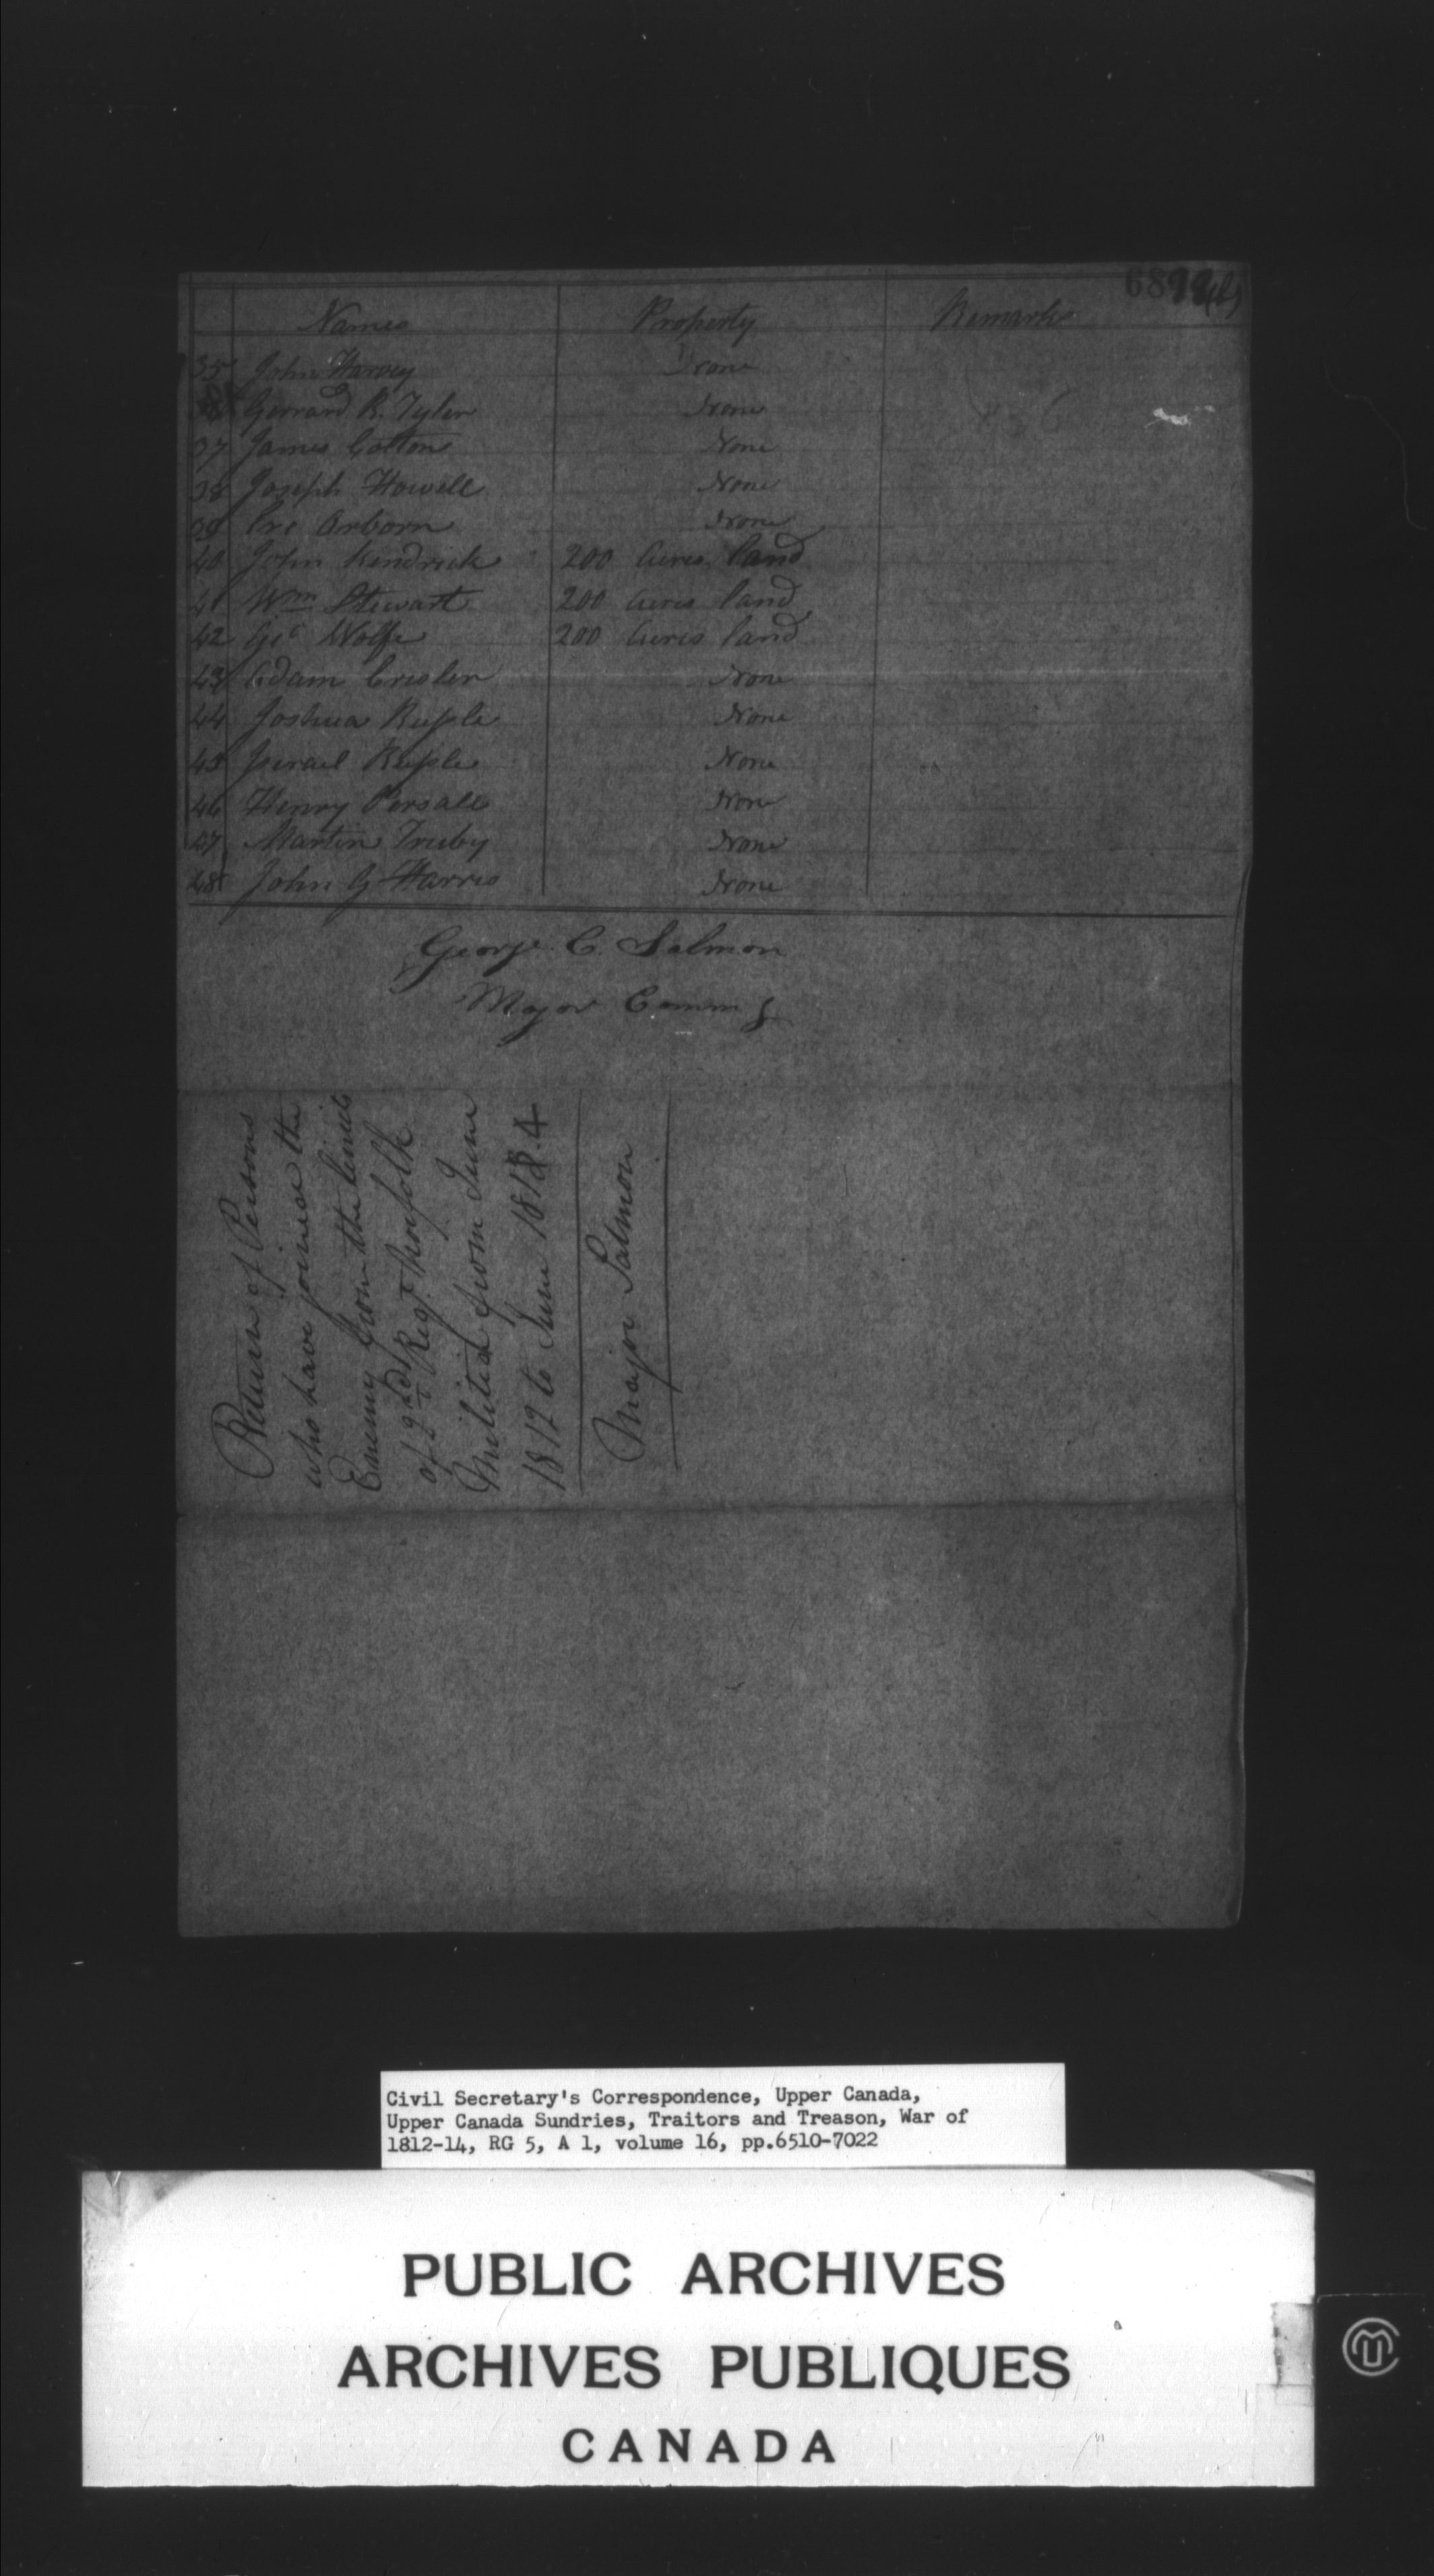 Names Property Remarks
35 John Harvey None
Gerrard R. Tyler None
37 James Cotton None
38 Joseph Howell None
39 Orborn None
40 John Kendrick 200 Acres land
41 Wm Stewart 200 Acres land
42 Geo Wolfe 200 Acres land
43 Adam Crisler None
44 Joshua Ruple None
45 Israel Ruple None
46 Henry Persall None
47 Martin Truby None
48 John G Harris None
George C. Salmon
Major Commg
Return of Persons
who have joined the
Enemy from the limits
of 2nd Regt Norfolk
Militia from June
1812 to June 1814
Major Salmon
Civil Secretary's Correspondence, Upper Canada,
Upper Canada Sundries, Traitors and Treason, War of
1812-14, RG 5, A 1, volume 16, pp.6510-7022
PUBLIC ARCHIVES
ARCHIVES PUBLIQUES
CANADA